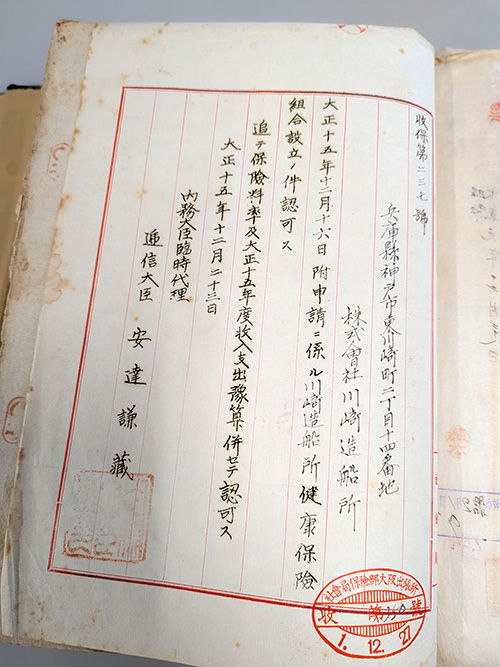 收保第二三七號
兵庫縣神戸市東川崎町二丁目十四番地
株式會社川崎造船所
大正十五年十二月十六日附申請ニ係ル川崎造船所健康保險
組合設立ノ件認可ス
追テ保險料率及大正十五年度收入支出豫算併セテ認可ス
大正十五年十二月二十三日
內務大臣臨時代理
遞信大臣 安達謙藏
社會局保險部大阪出張所
收 第 號
1.12.27